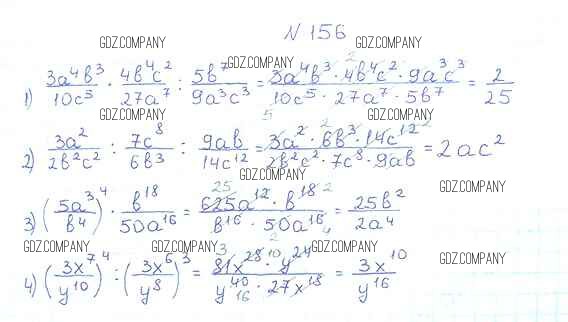 N 156
GDZ.COMPANY GDZ.COMPANY
GDZ.COMPANY
1) 3a⁴b³/10c⁵ · 4b⁴c²/27a⁷ : 5b⁷/9a³c³ = 3a⁴b³ · 4b⁴c² · 9a³c³/10c⁵ · 27a⁷ · 5b⁷ = 2/25
GDZ.COMPANY GDZ.COMPANY GDZ.COMPANY
2) 3a²/2b²c² : 7c⁸/6b³ : 9ab/14c¹² = 3a² · 6b³ · 14c¹²/2b²c² · 7c⁸ · 9ab = 2ac²
GDZ.COMPANY
GDZ.COMPANY
3) (5a³/b⁴)⁴ · b¹⁸/50a¹⁶ = 625a¹² · b¹⁸/b¹⁶ · 50a¹⁶ = 25b²/2a⁴
GDZ.COMPANY GDZ.COMPANY GDZ.COMPANY
GDZ.COMPANY
4) (3x⁷/y¹⁰)⁴ : (3x⁶/y⁸)³ = 81x²⁸ · y²⁴/y⁴⁰ · 27x¹⁸ = 3x¹⁰/y¹⁶